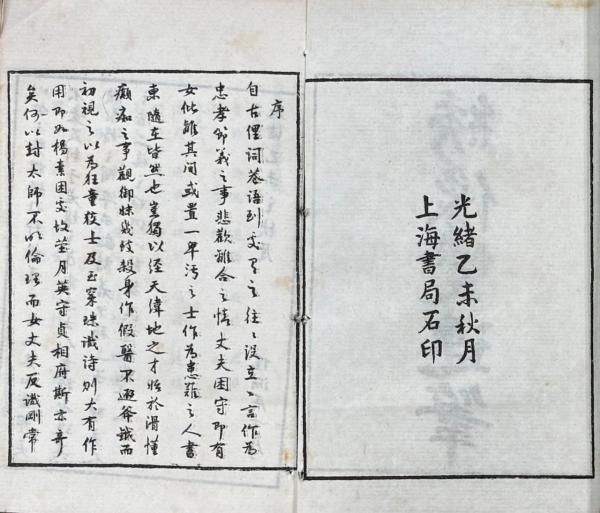 光緒乙未秋月
上海書局石印
序
自古俚詞巷語到交耳之往〻設立〻言作為
忠孝節義之事悲歡離合之情丈夫困守即有
女仳離其間或置一卑污之士作為患難之人書
東隨在皆然也豈獨以經天偉地之才恆於滑懂
癲痴之事觀御妹幾歧殺身作假醫不避斧鉞而
初視之以為狂童狡士及玉案珠讖詩別大有作
用即如楊素因受故瑩月英守貞相府斯亦奇
矣何以封太師不以倫理而女丈夫反識剛常